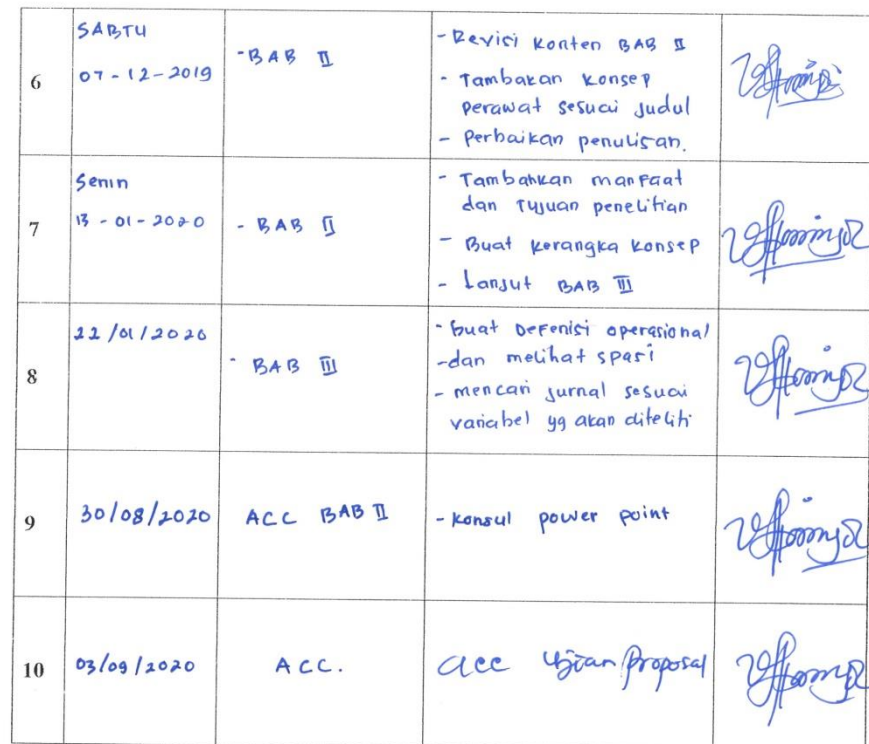 6
SABTU
07-12-2019
- BAB II
- Revisi Konten BAB II
- Tambakan Konsep
perawat sesuai Judul
- Perbaikan penulisan.
7
Senin
13-01-2020
- BAB II
- Tambahkan manfaat
dan Tujuan penelitian
- Buat kerangka konsep
- Lanjut BAB III
8
22/01/2020
- BAB III
- Buat Defenisi operasional
- dan melihat spasi
- mencari jurnal sesuai
variabel yg akan diteliti
9
30/08/2020
ACC BAB II
- Konsul power point
10
03/09/2020
ACC.
acc Ujian Proposal